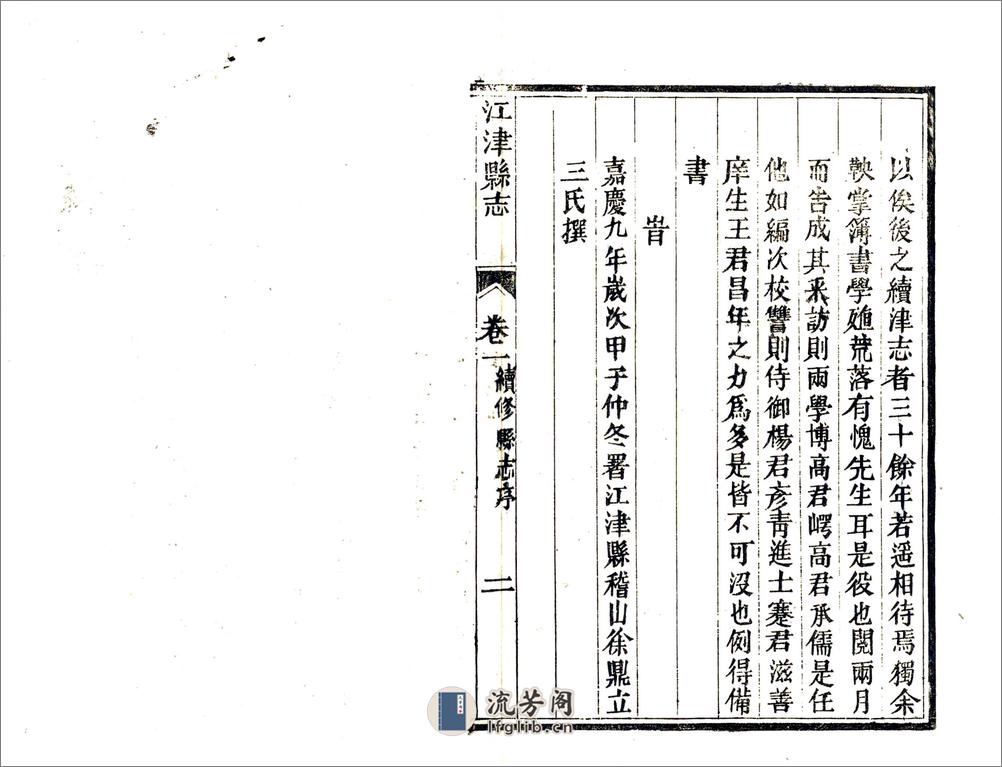 以俟後之續津志者三十餘年若遥相待焉獨余
鞅掌簿書學殖荒落有愧先生耳是役也閱兩月
而告成其采訪則兩學博高君崿高君承儒是任
他如編次校讐則侍御楊君彥靑進士蹇君滋善
庠生王君昌年之力爲多是皆不可沒也例得備
書
旹
嘉慶九年歲次甲子仲冬署江津縣稽山徐鼎立
三氏撰
江津縣志
卷一
續修縣志序
二
流芳阁
lfglib.cn